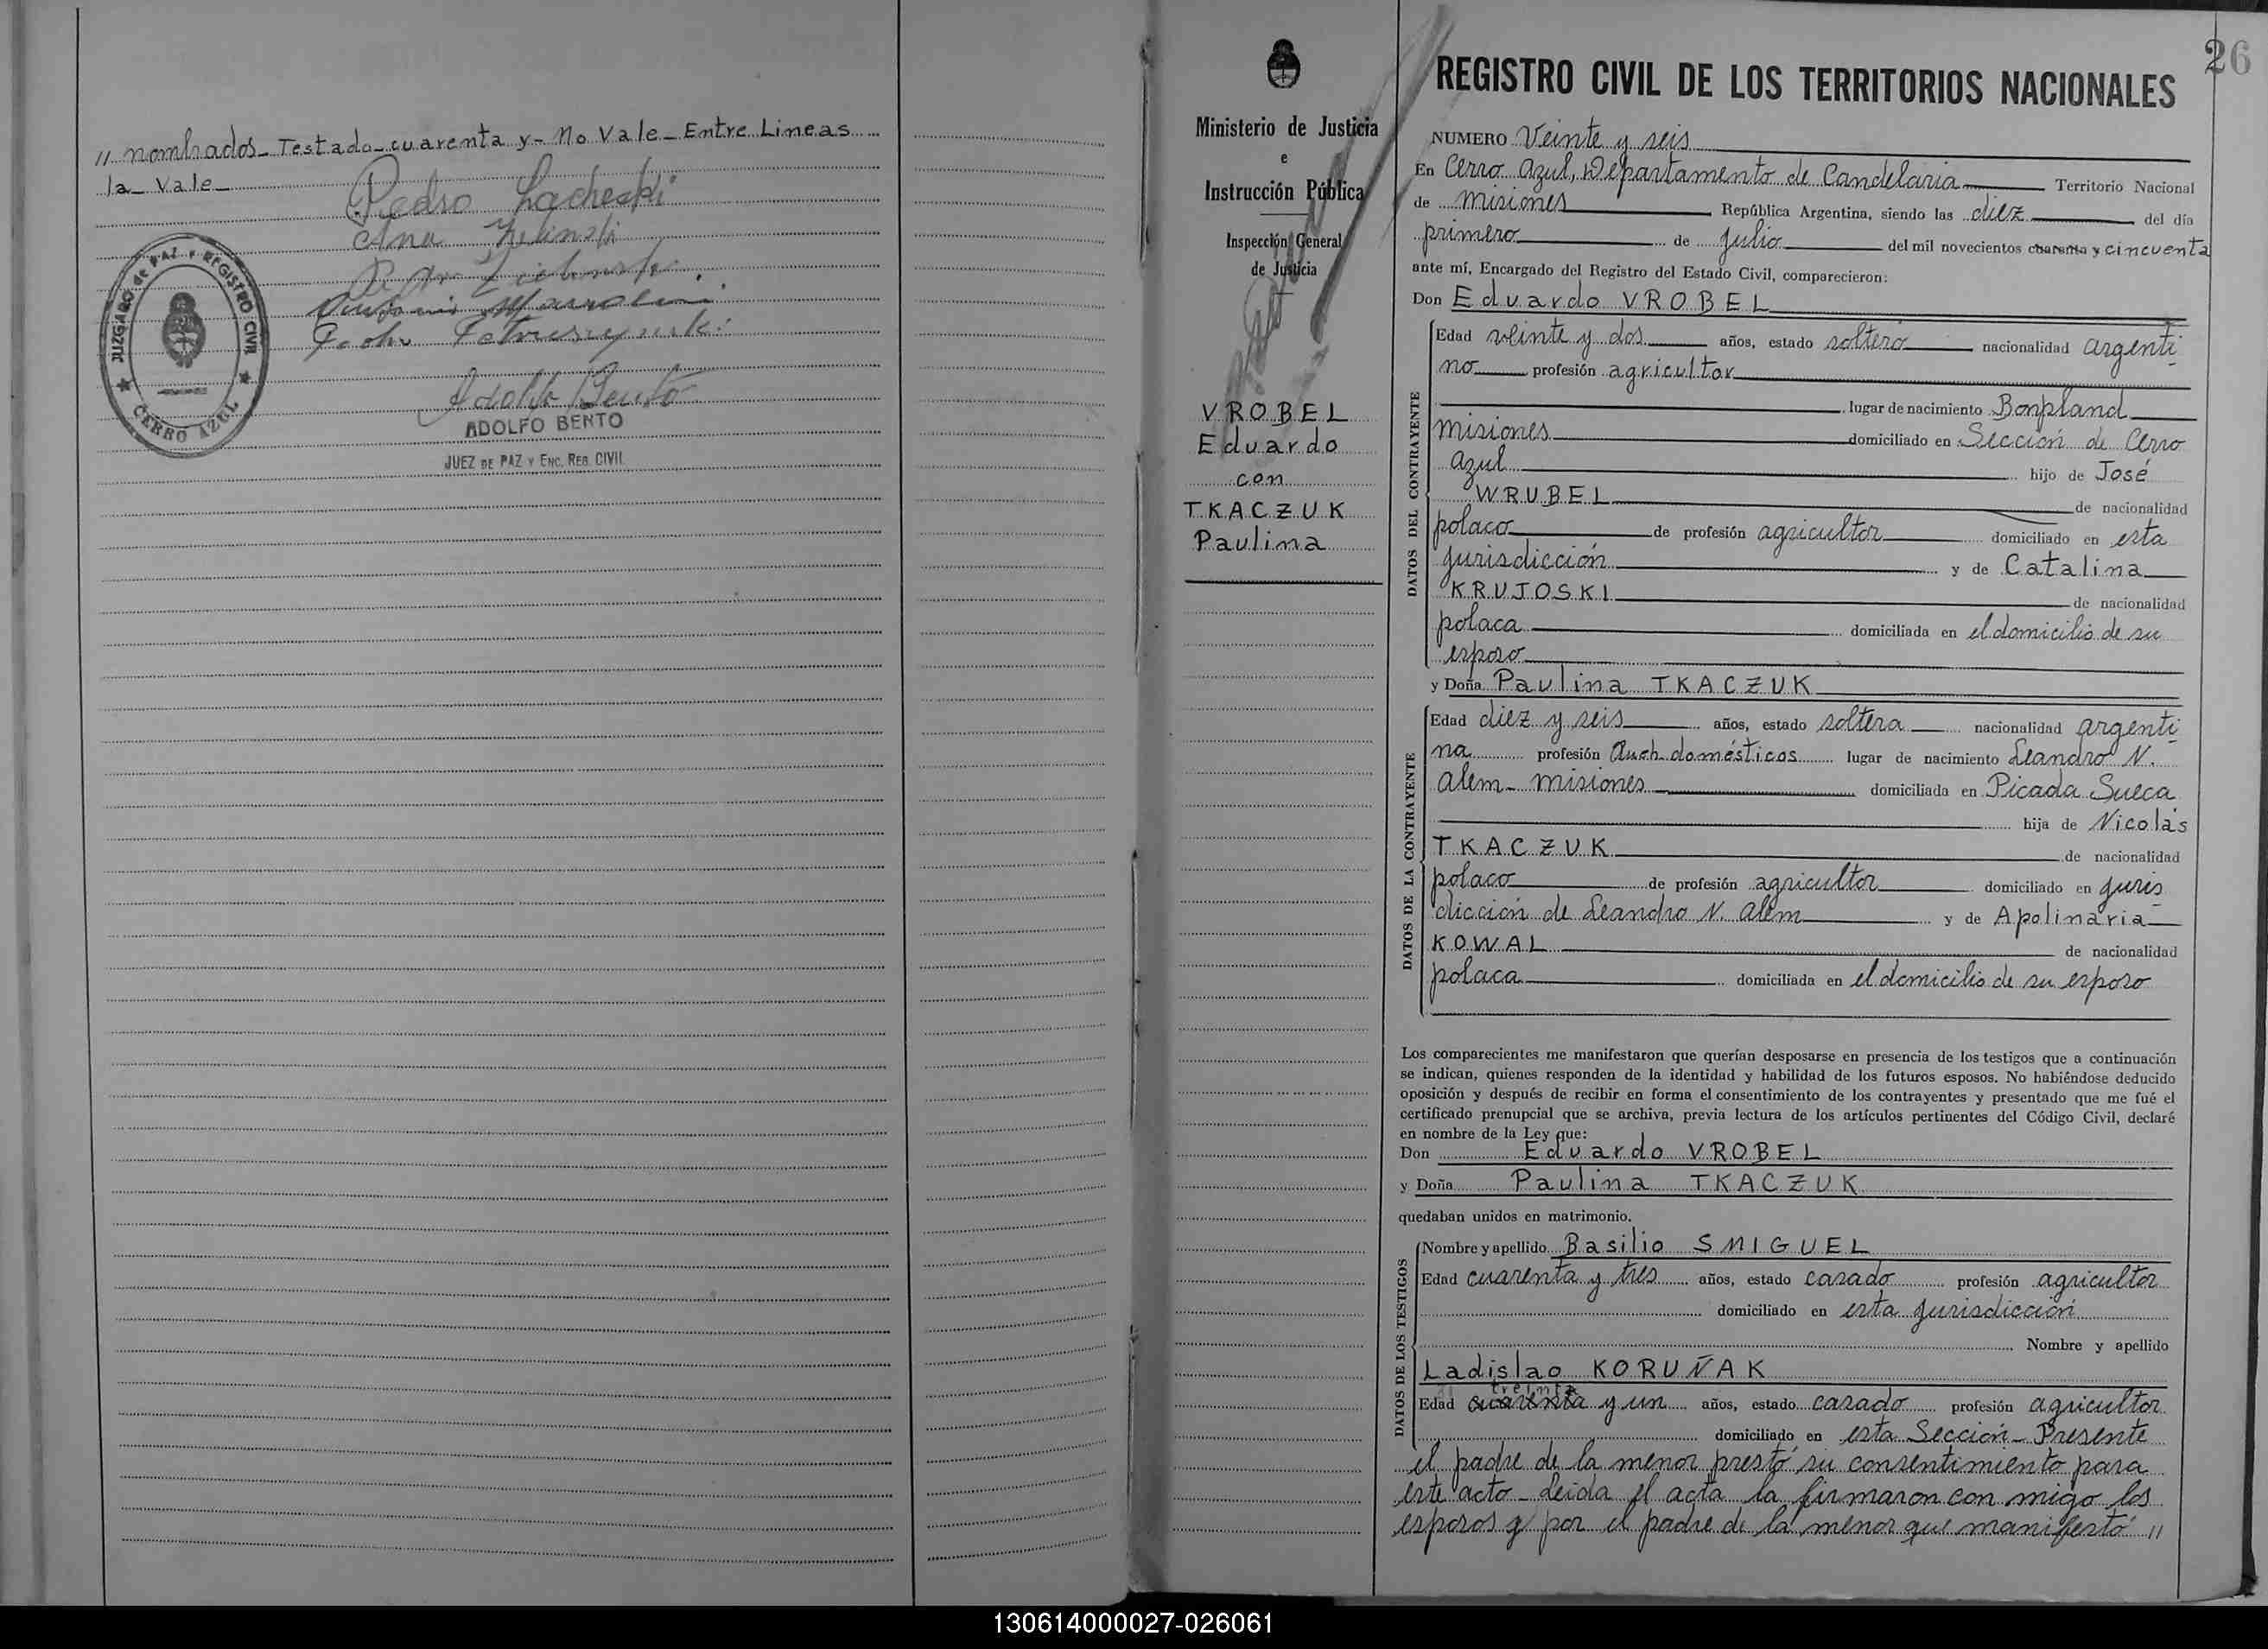 " nombrados_ Testado_cuarenta y_ No Vale_ Entre Lineas
la_ Vale_
Pedro
Ana Zelinski
JUZGADO de PAZ y REGISTRO CIVIL
CERRO AZUL
Adolfo Bento
ADOLFO BENTO
JUEZ DE PAZ Y ENC. REG. CIVIL
Ministerio de Justicia
e
Instrucción Pública
Inspección General
de Justicia
VROBEL
Eduardo
con
TKACZUK
Paulina
26
REGISTRO CIVIL DE LOS TERRITORIOS NACIONALES
NUMERO Veinte y seis
En Cerro Azul, Departamento de Candelaria Territorio Nacional
de Misiones República Argentina, siendo las diez del día
primero de Julio del mil novecientos cuarenta y cincuenta
ante mí, Encargado del Registro del Estado Civil, comparecieron:
Don Eduardo VROBEL
DATOS DEL CONTRAYENTE
Edad veinte y dos años, estado soltero nacionalidad argenti-
no profesión agricultor
lugar de nacimiento Bonpland
Misiones domiciliado en Sección de Cerro
Azul hijo de José
WRUBEL de nacionalidad
polaco de profesión agricultor domiciliado en esta
Jurisdicción y de Catalina
KRUJOSKI de nacionalidad
polaca domiciliada en el domicilio de su
esposo
y Doña Paulina TKACZUK
DATOS DE LA CONTRAYENTE
Edad diez y seis años, estado soltera nacionalidad argenti-
na profesión Queh. domésticos lugar de nacimiento Leandro N.
Alem_ Misiones domiciliada en Picada Sueca
hija de Nicolás
TKACZUK de nacionalidad
polaco de profesión agricultor domiciliado en Juris
dicción de Leandro N. Alem y de Apolinaria
KOWAL de nacionalidad
polaca domiciliada en el domicilio de su esposo
Los comparecientes me manifestaron que querían desposarse en presencia de los testigos que a continuación
se indican, quienes responden de la identidad y habilidad de los futuros esposos. No habiéndose deducido
oposición y después de recibir en forma el consentimiento de los contrayentes y presentado que me fué el
certificado prenupcial que se archiva, previa lectura de los artículos pertinentes del Código Civil, declaré
en nombre de la Ley que:
Don Eduardo VROBEL
y Doña Paulina TKACZUK
quedaban unidos en matrimonio.
DATOS DE LOS TESTIGOS
Nombre y apellido Basilio SMIGUEL
Edad cuarenta y tres años, estado casado profesión agricultor
domiciliado en esta Jurisdicción
Nombre y apellido
Ladislao KORUÑAK
treinta
Edad cuarenta y un años, estado casado profesión agricultor
domiciliado en esta Sección_ Presente
el padre de la menor prestó su consentimiento para
este acto_ Leida el acta la firmaron con migo los
esposos y por el padre de la menor que manifestó "
130614000027-026061